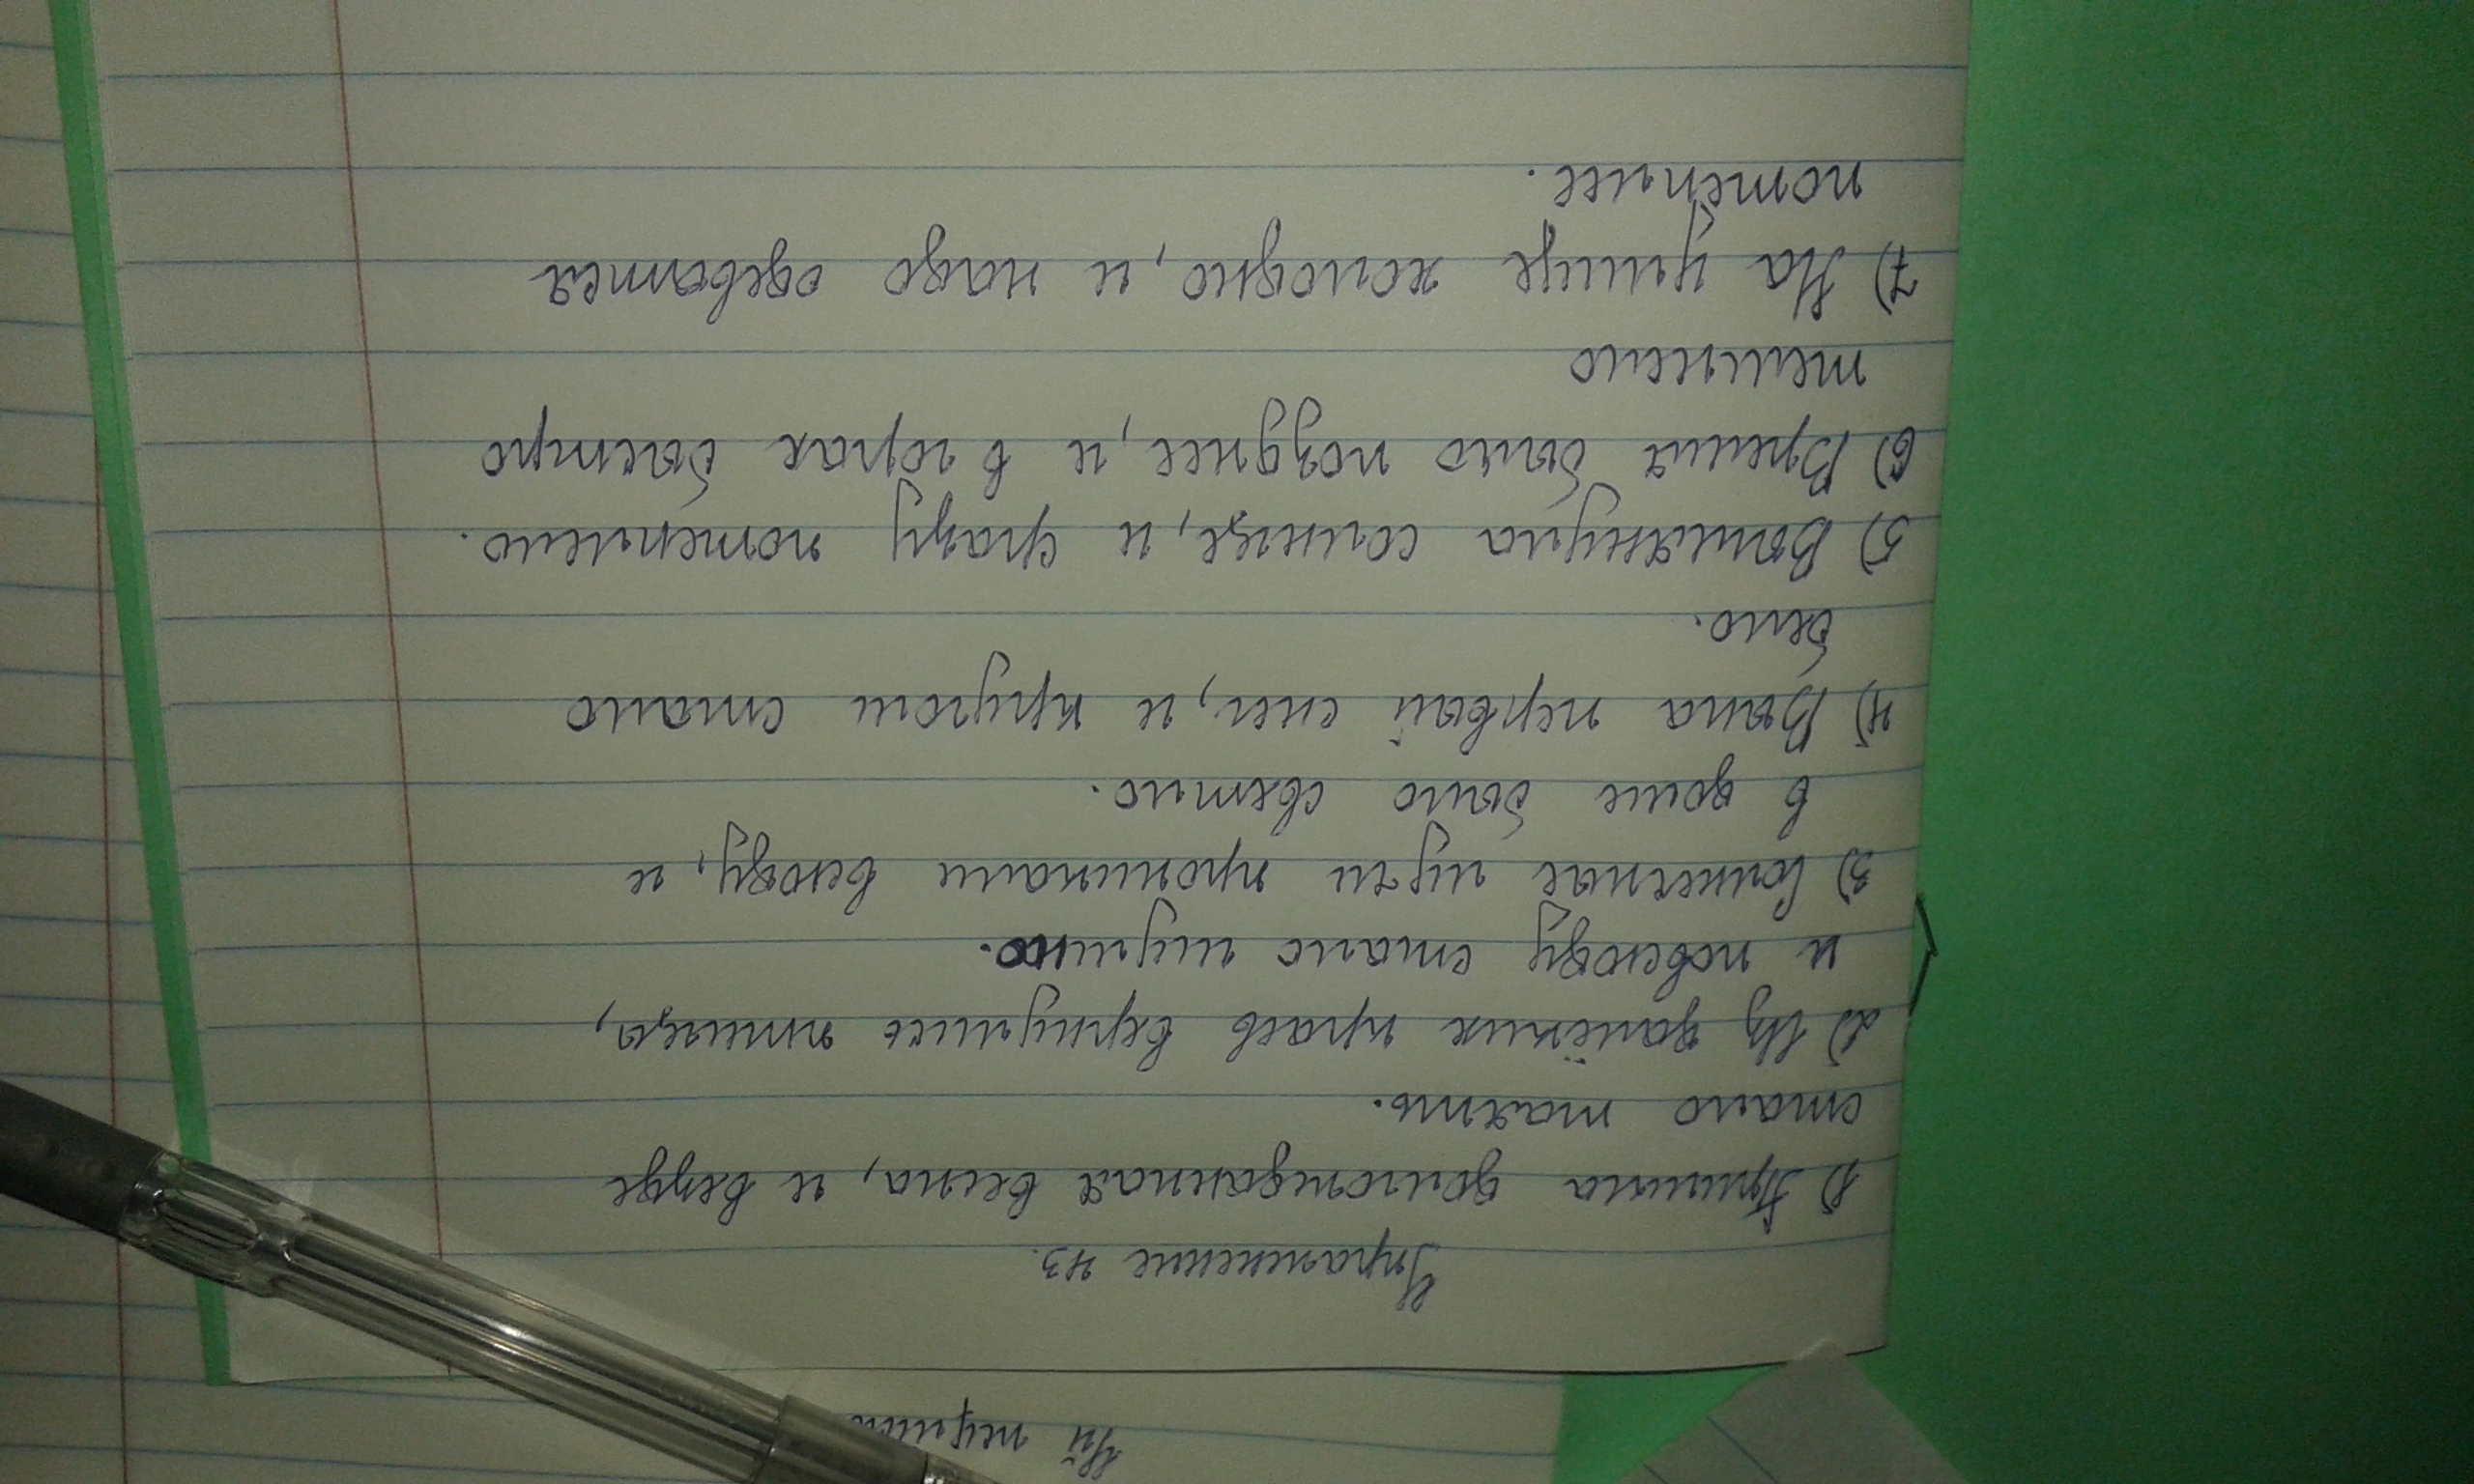 Упражнение 43.
1) Пришла долгожданная весна, и везде
стало таять.
2) Из далёких краёв вернулись птицы,
и повсюду стало шумно.
3) Солнечные лучи проникали всюду, и
в доме было светло.
4) Выпа первый снег, и кругом стало
бело.
5) Выглянула солнце, и сразу потеплело.
6) Время было позднее, и в горах быстро
темнело
7) На улице холодно, и надо одеватся
потеплее.